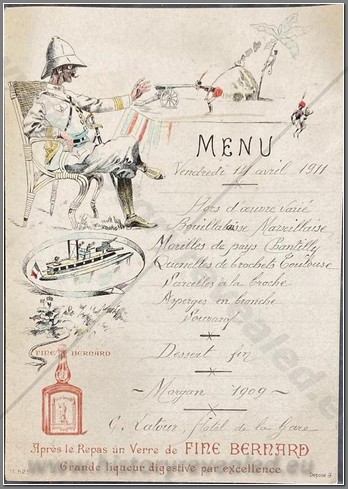 MENU
Vendredi 14 avril 1911
Hors d'œuvre varié
Bouillabaisse Marseillaise
Morilles de pays Chantilly
Quenelles de brochets Toulouse
Sarcelles à la broche
Asperges en branche
Dessert fin
Morgon 1909
C. Latour, Hôtel de la Gare
FINE BERNARD
Après le Repas un Verre de FINE BERNARD
Grande liqueur digestive par excellence